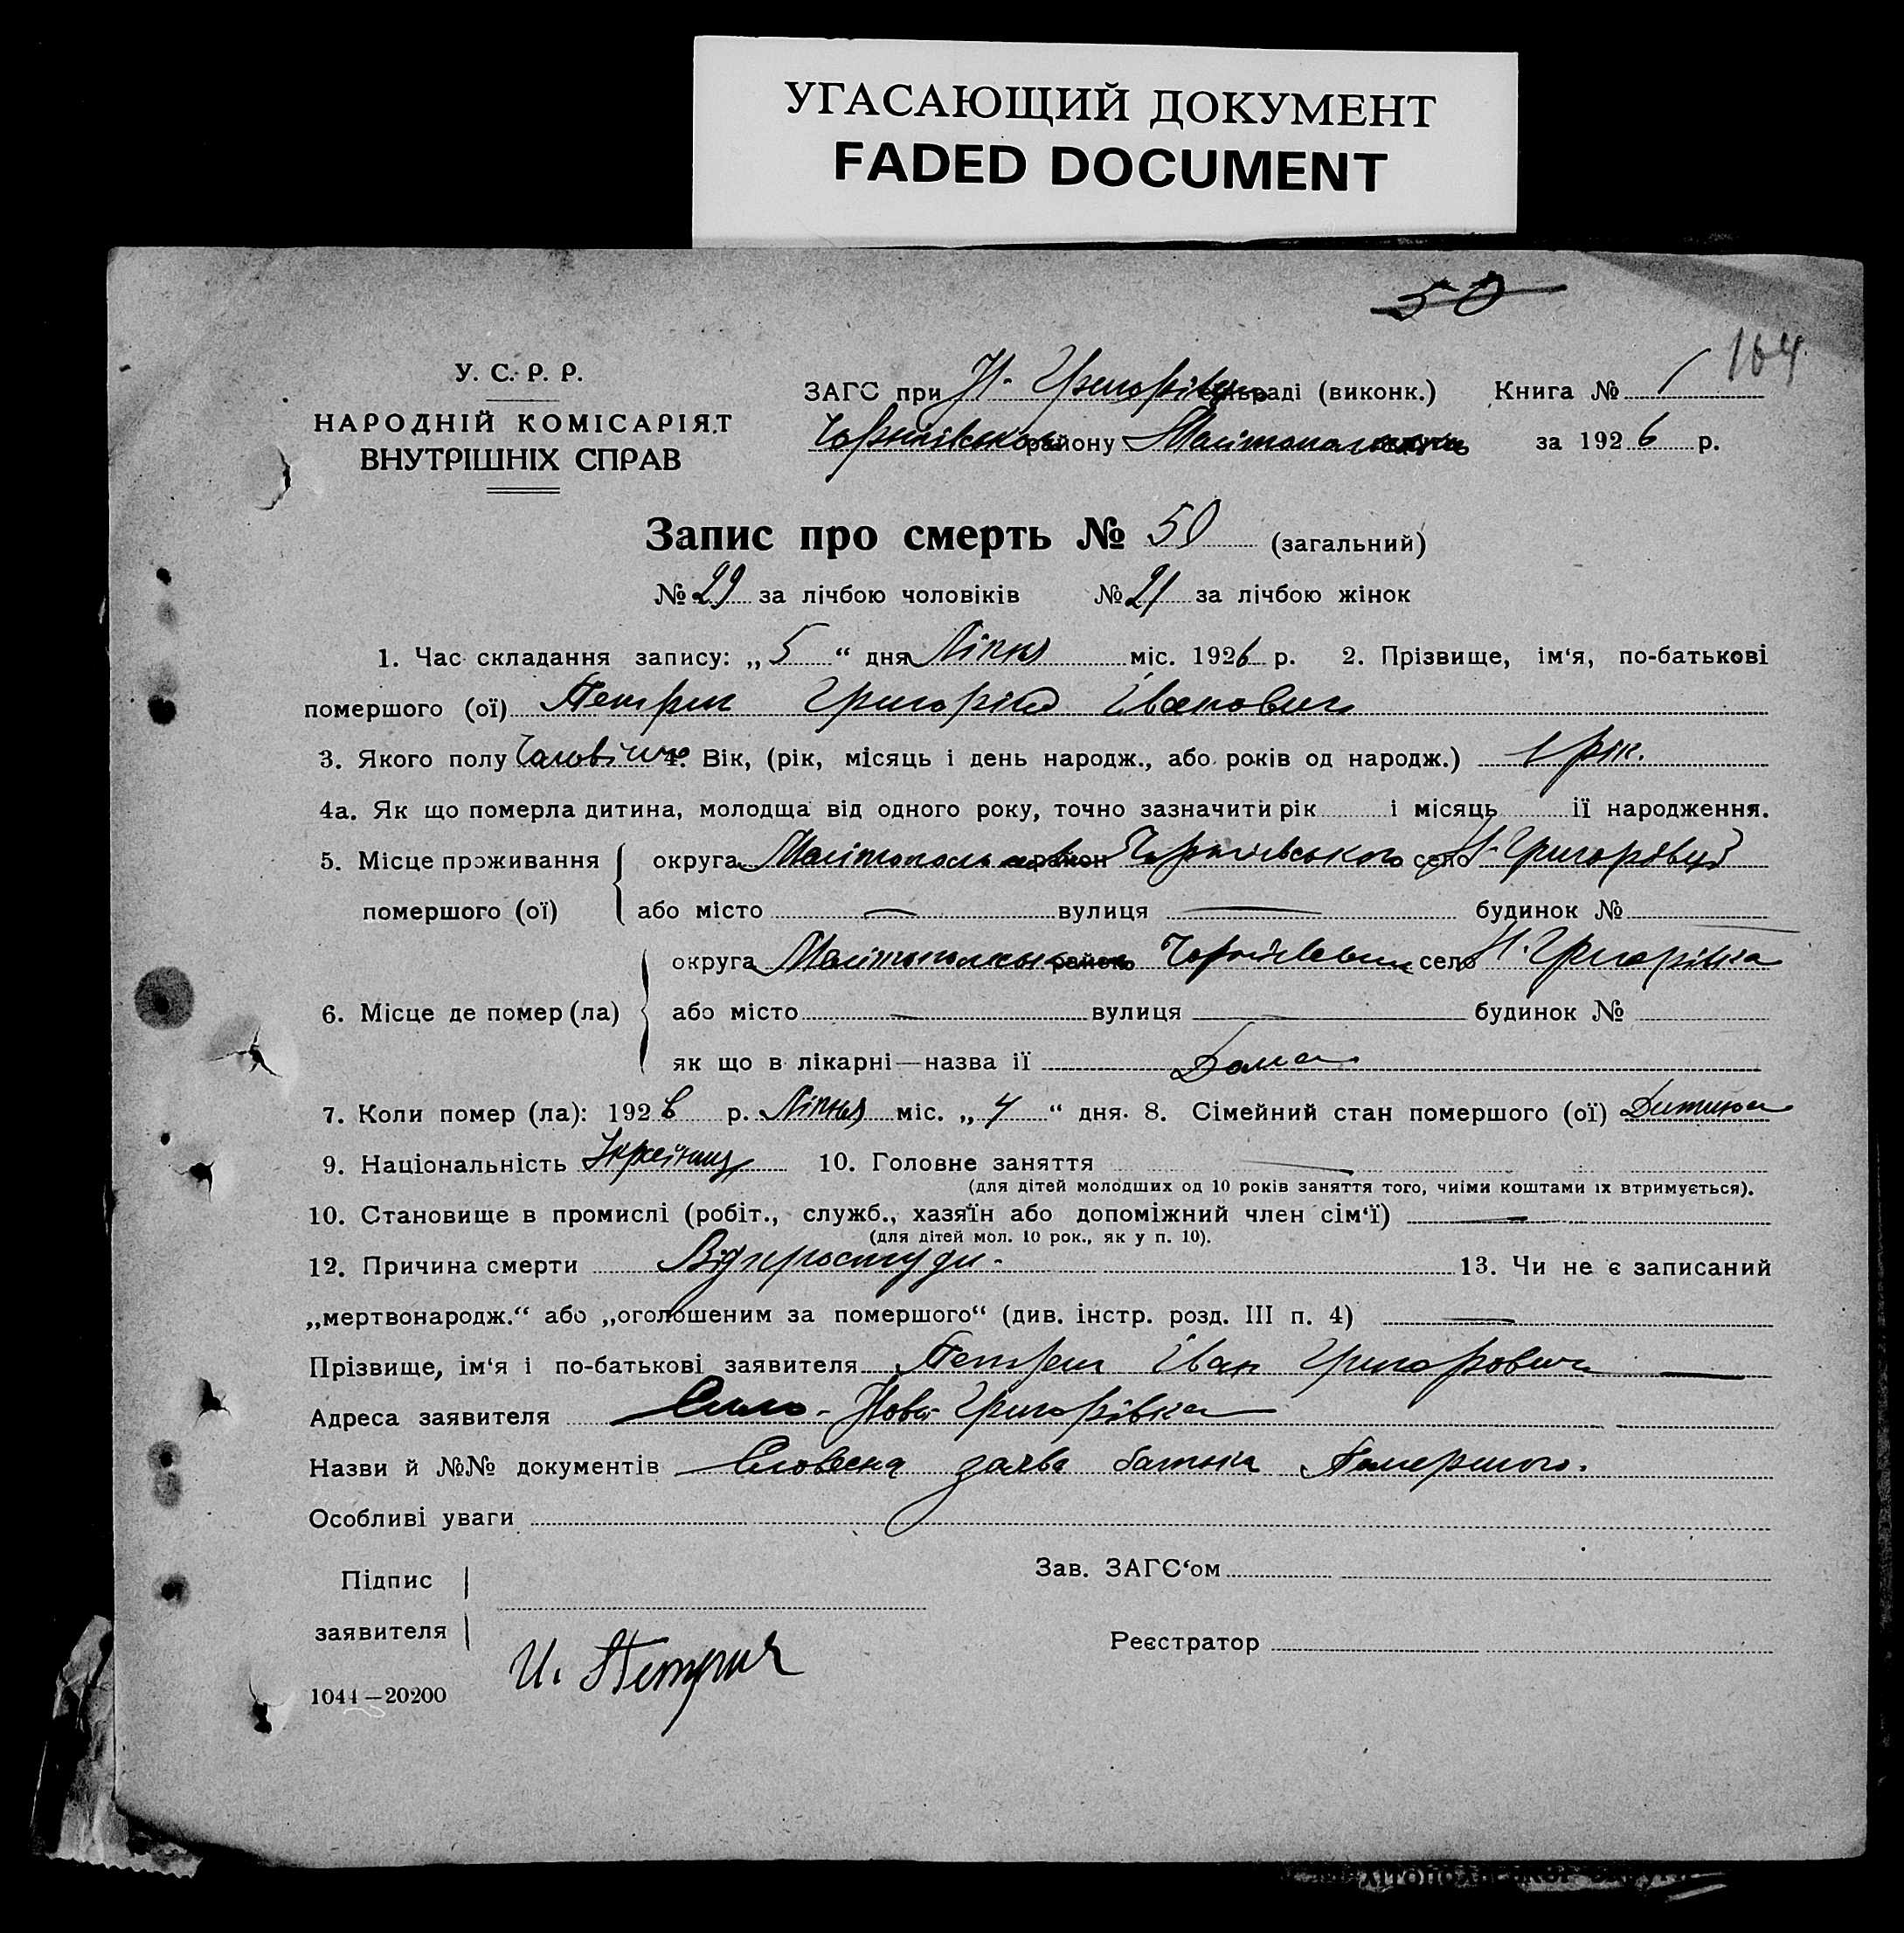 УГАСАЮЩИЙ ДОКУМЕНТ
FADED DOCUMENT
50
164
У. С. Р. Р.
НАРОДНІЙ КОМІСАРІЯТ
ВНУТРІШНІХ СПРАВ
ЗАГС при Н-Григорівц сільраді (виконк.) Книга № 1
району за 1926 р.
Запис про смерть № 50 (загальний)
№ 29 за лічбою чоловіків № 21 за лічбою жінок
1. Час складання запису: „ 5 “ дня Ліпня міс. 1926 р. 2. Прізвище, ім‘я, по-батькові
помершого (ої) Петрич Григорій Іванович
3. Якого полу Чоловіче 4. Вік, (рік, місяць і день народж., або років од народж.) 1 рік.
4а. Як що померла дитина, молодща від одного року, точно зазначити рік і місяць ії народження.
5. Місце проживання округа район село Н-Григорівці
помершого (ої) або місто — вулиця — будинок №
округа район село Н. Григорівка
6. Місце де помер (ла) або місто — вулиця — будинок №
як що в лікарні—назва ії Дома
7. Коли помер (ла): 1926 р. Ліпня міс. „ 4 “ дня. 8. Сімейний стан помершого (ої) Дитина
9. Національність Украінец 10. Головне заняття —
(для дітей молодших од 10 років заняття того, чиїми коштами їх втримується).
10. Становище в промислі (робіт., служб., хазяїн або допоміжний член сім‘ї) —
(для дітей мол. 10 рок., як у п. 10).
12. Причина смерти Від простуди. 13. Чи не є записаний
„мертвонародж.“ або „оголошеним за помершого“ (див. інстр. розд. III п. 4) —
Прізвище, ім‘я і по-батькові заявителя Петрич Іван Григорович
Адреса заявителя Село-Ново Григорівка
Назви й №№ документів Словесна заява батька Помершого.
Особливі уваги
Підпис
заявителя
И. Петрич
Зав. ЗАГС‘ом
Реєстратор
1044—20200